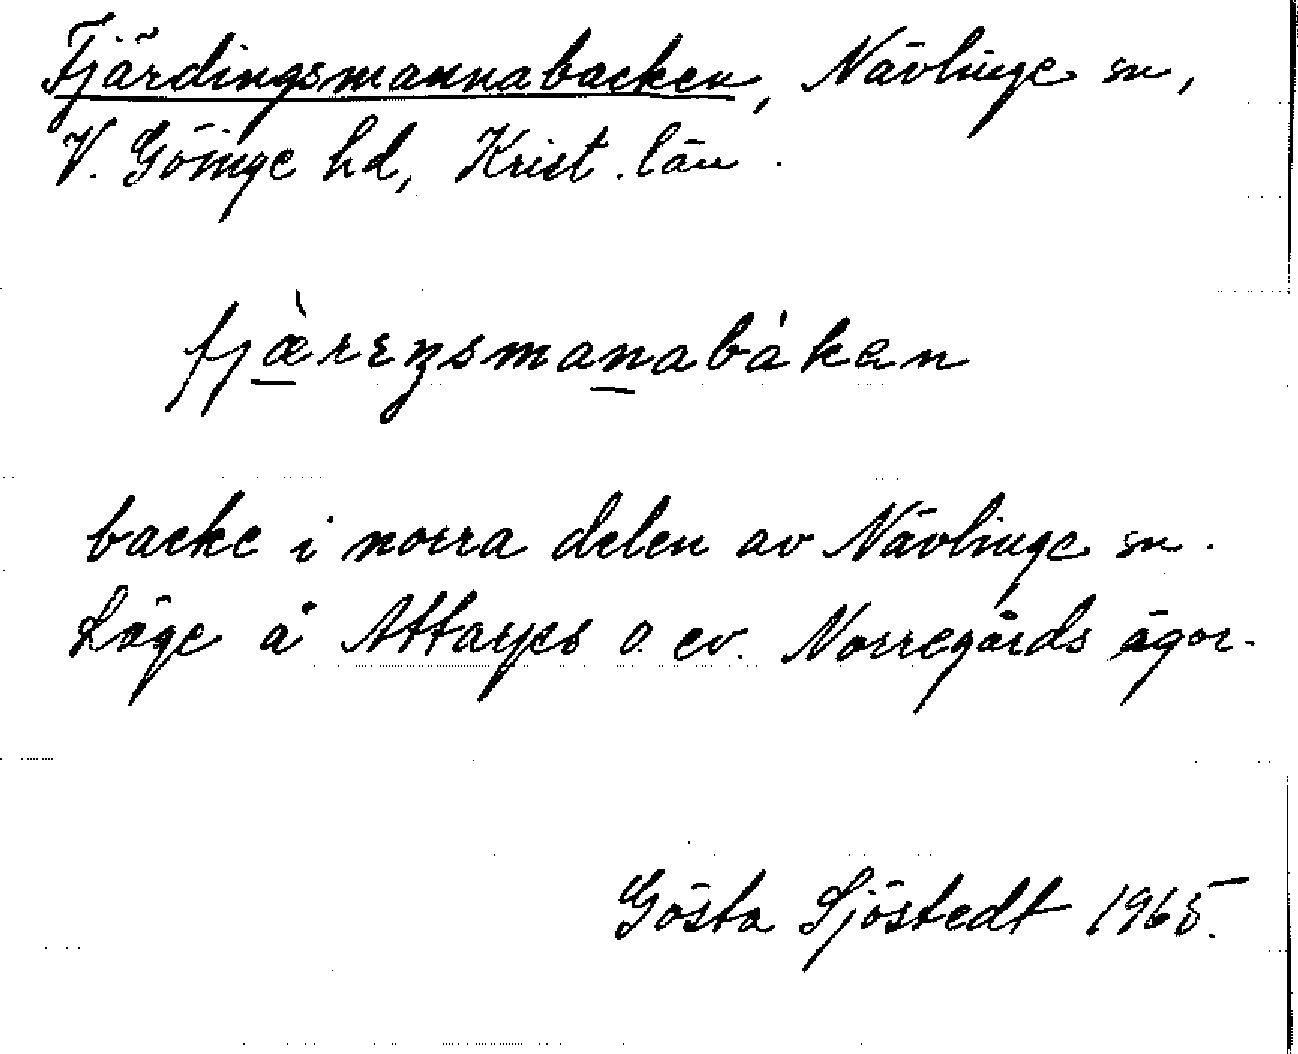 Fjärdingsmannabacken, Nävlinge sn,
V. Göinge hd, Krist. län.
fjæ̀rɛŋsmanabákan
backe i norra delen av Nävlinge sn.
Läge å Attarps o. ev. Norregårds ägor.
Gösta Sjöstedt 1965.